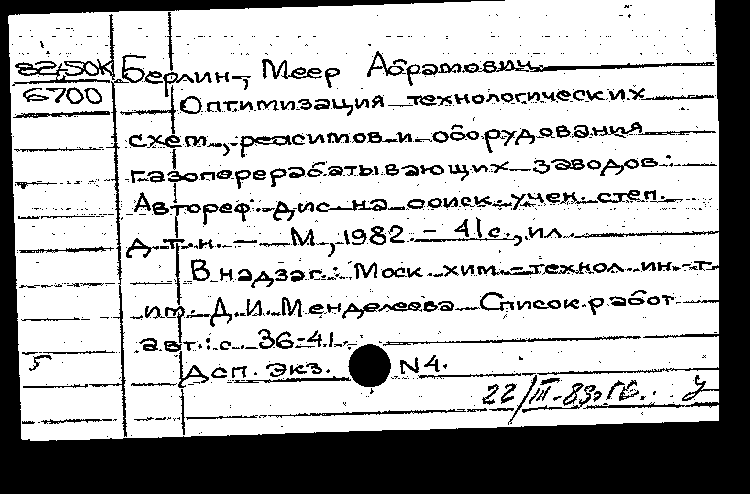 82-50К
6700
Берлин, Меер Абрамович.
Оптимизация технологических
схем, режимов и оборудования
газоперерабатывающих заводов:
Автореф. дис. на соиск. учен. степ.
д. т. н. — М., 1982. – 41 с., ил.
В надзаг.: Моск. хим.-технол. ин-т
им. Д. И. Менделеева. Список работ
авт.: с. 36-41.
Дсп. Экз. N4.
5
22/III-83г.